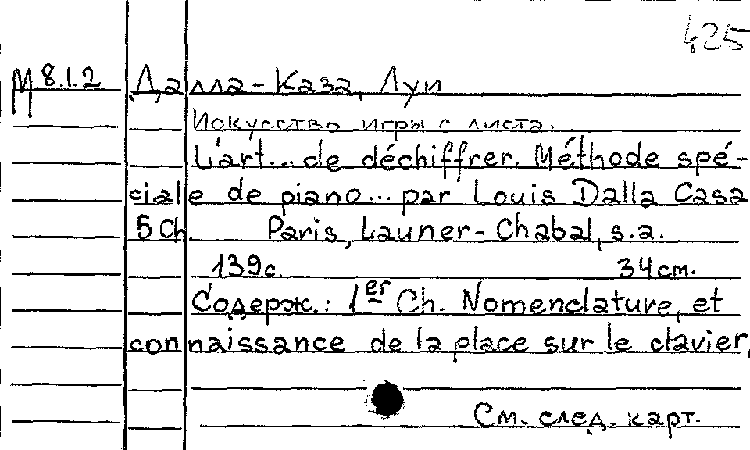 425
М 8.1.2 Далла-Каза, Луи
Искусство игры с листа.
L'art... de déchiffrer. Méthode spé-
ciale de piano... par Louis Dalla Casa
5 Ch. Paris, Launer-Chabal, s.a.
139с. 34см.
Содерж.: 1er Ch. Nomenclature, et
connaissance de la place sur le clavier,
См. след. карт.